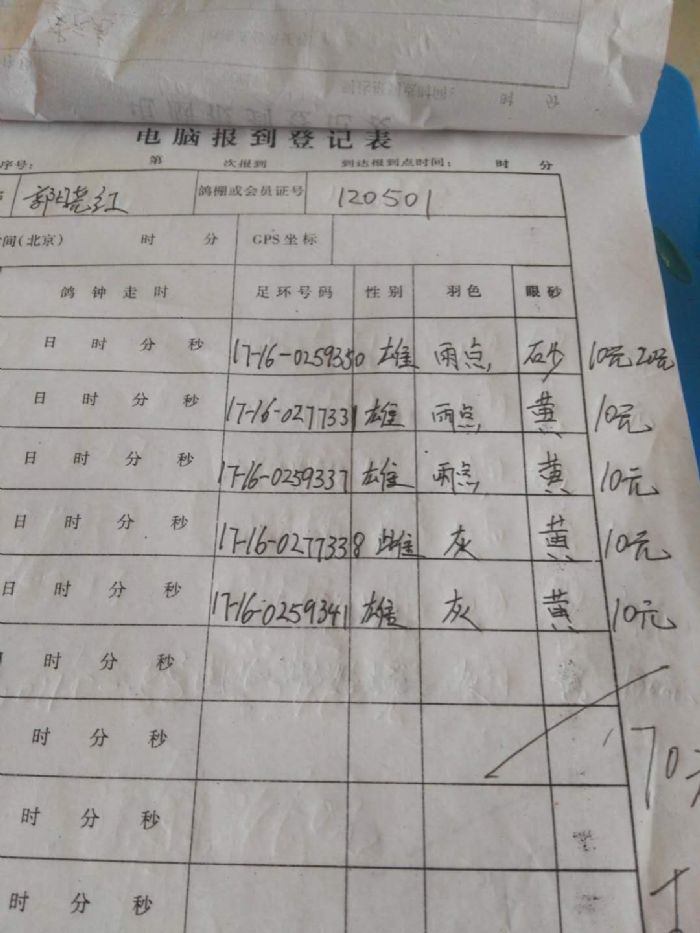 电脑报到登记表
序号: 第 次报到 到达报到点时间: 时 分
郭晓红 鸽棚或会员证号 120501
间(北京) 时 分 GPS坐标
鸽钟走时 足环号码 性别 羽色 眼砂
日 时 分 秒 17-16-0259350 雄 雨点 砂 10元 20元
日 时 分 秒 17-16-0277331 雄 雨点 黄 10元
日 时 分 秒 17-16-0259337 雄 雨点 黄 10元
日 时 分 秒 17-16-0277338 雄 灰 黄 10元
日 时 分 秒 17-16-0259341 雄 灰 黄 10元
日 时 分 秒
时 分 秒 70元
时 分 秒
时 分 秒